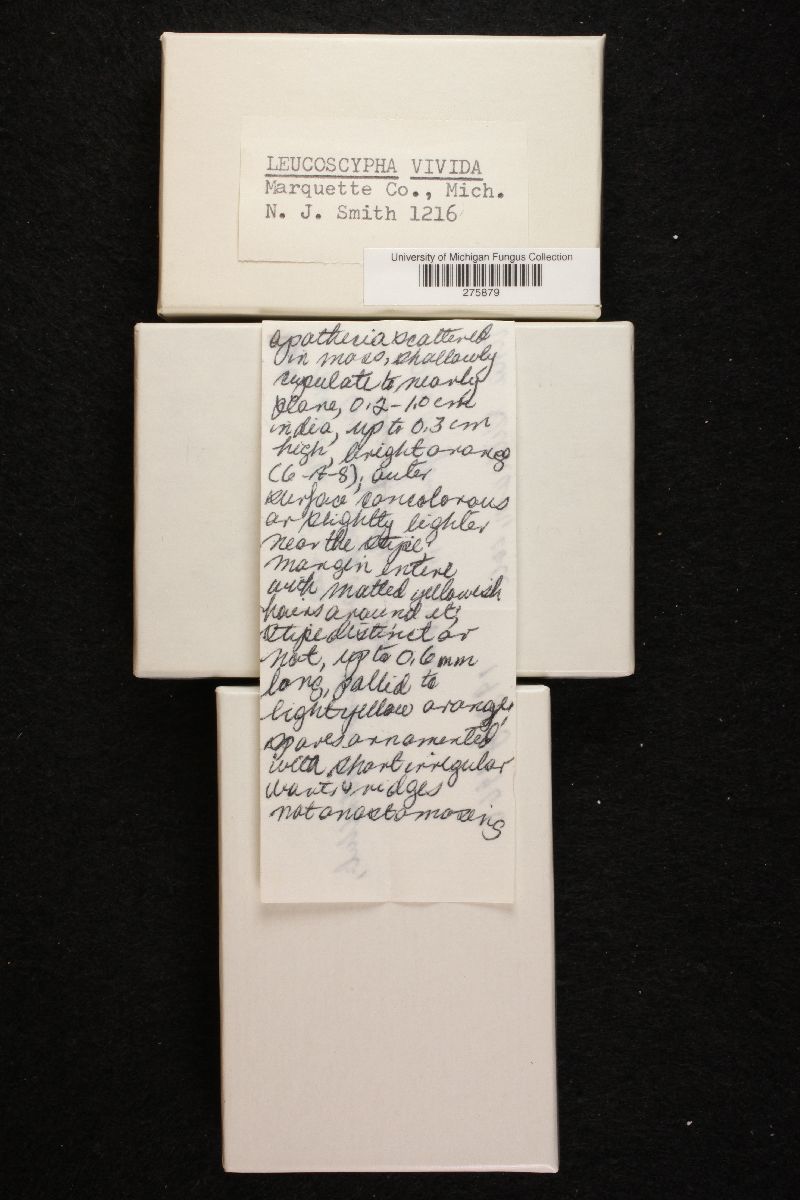 LEUCOSCYPHA VIVIDA
Marquette Co., Mich.
N. J. Smith 1216
University of Michigan Fungus Collection
275879
apothecia scattered
in moss, shallowly
cupulate to nearly
plane, 0.2-1.0 cm
in dia, up to 0.3 cm
high, bright orange
(6-A-8), outer
surface concolorous
or slightly lighter
near the stipe,
margin entire
with matted yellowish
hairs around it;
stipe distinct or
not, up to 0.6 mm
long, pallid to
light yellow orange,
spores ornamented
with short irregular
warts & ridges
not anastomosing